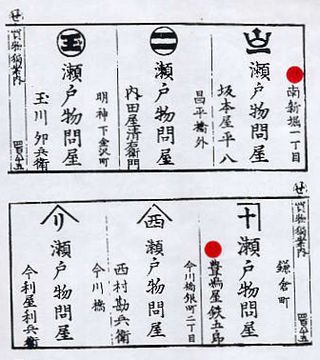 せ
南新堀一丁目
瀬戸物問屋
坂本屋平八
昌平橋外
瀬戸物問屋
内田屋清右衛門
明神下金沢町
玉
瀬戸物問屋
玉川卯兵衛
買物獨案内
せ
買物獨案内
鎌倉町
十
瀬戸物問屋
豊嶋屋鉄五郎
今川橋銀町二丁目
西
瀬戸物問屋
西村勘兵衛
今川橋
リ
瀬戸物問屋
今利屋利兵衛